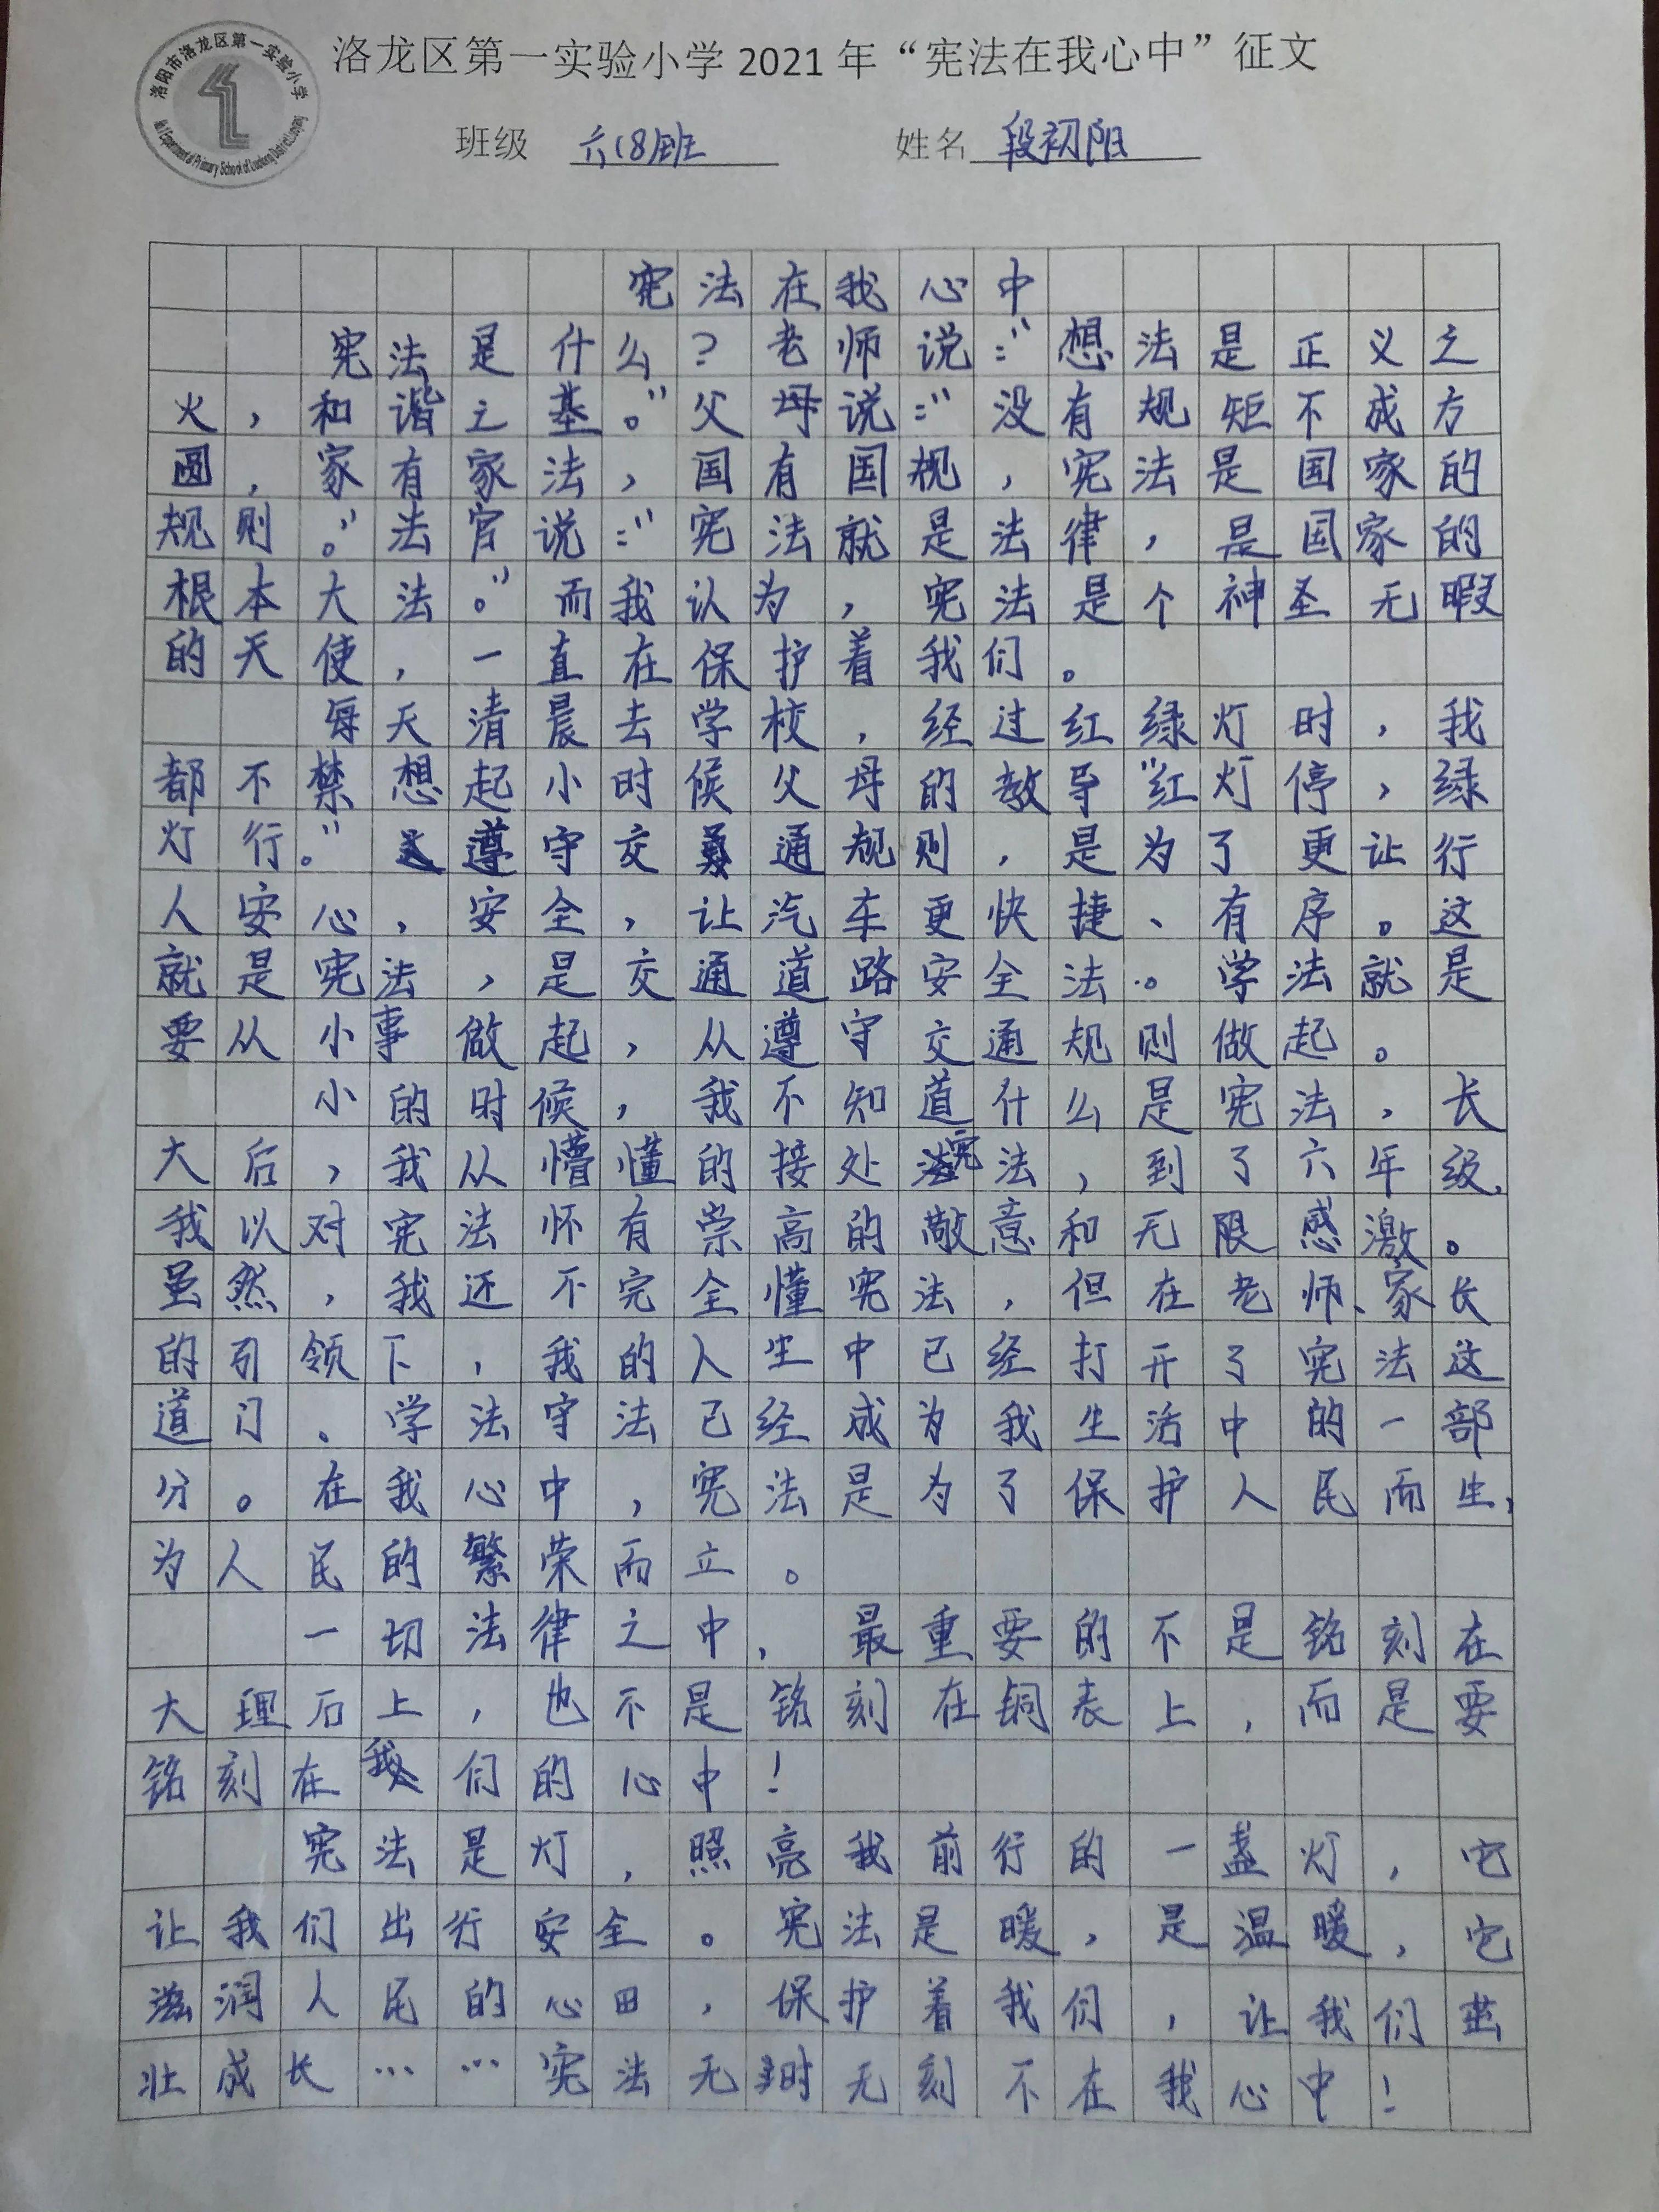 洛阳市洛龙区第一实验小学
No.1 Experimental Primary School of Luolong District Luoyang
洛龙区第一实验小学2021年“宪法在我心中”征文
班级 六(8)班 姓名 段初阳
宪法在我心中
宪法是什么?老师说:“想法是正义之
火,和谐之基。”父母说:“没有规矩不成方
圆,家有家法,国有国规,宪法是国家的
规则。”法官说:“宪法就是法律,是国家的
根本大法。”而我认为,宪法是个神圣无暇
的天使,一直在保护着我们。
每天清晨去学校,经过红绿灯时,我
都不禁想起小时候父母的教导“红灯停,绿
灯行。”遵守交通规则,是为了更让行
人安心,安全,让汽车更快捷、有序。这
就是宪法,是交通道路安全法。学法就是
要从小事做起,从遵守交通规则做起。
小的时候,我不知道什么是宪法,长
大后,我从懵懂的接处宪法,到了六年级,
我以对宪法怀有崇高的敬意和无限感激。
虽然,我还不完全懂宪法,但在老师、家长
的引领下,我的人生中已经打开了宪法这
道门、学法守法已经成为我生活中的一部
分。在我心中,宪法是为了保护人民而生,
为人民的繁荣而立。
一切法律之中,最重要的不是铭刻在
大理石上,也不是铭刻在铜表上,而是要
铭刻在我们的心中!
宪法是灯,照亮我前行的一盏灯,它
让我们出行安全。宪法是暖,是温暖,它
滋润人民的心田,保护着我们,让我们茁
壮成长……宪法无时无刻不在我心中!